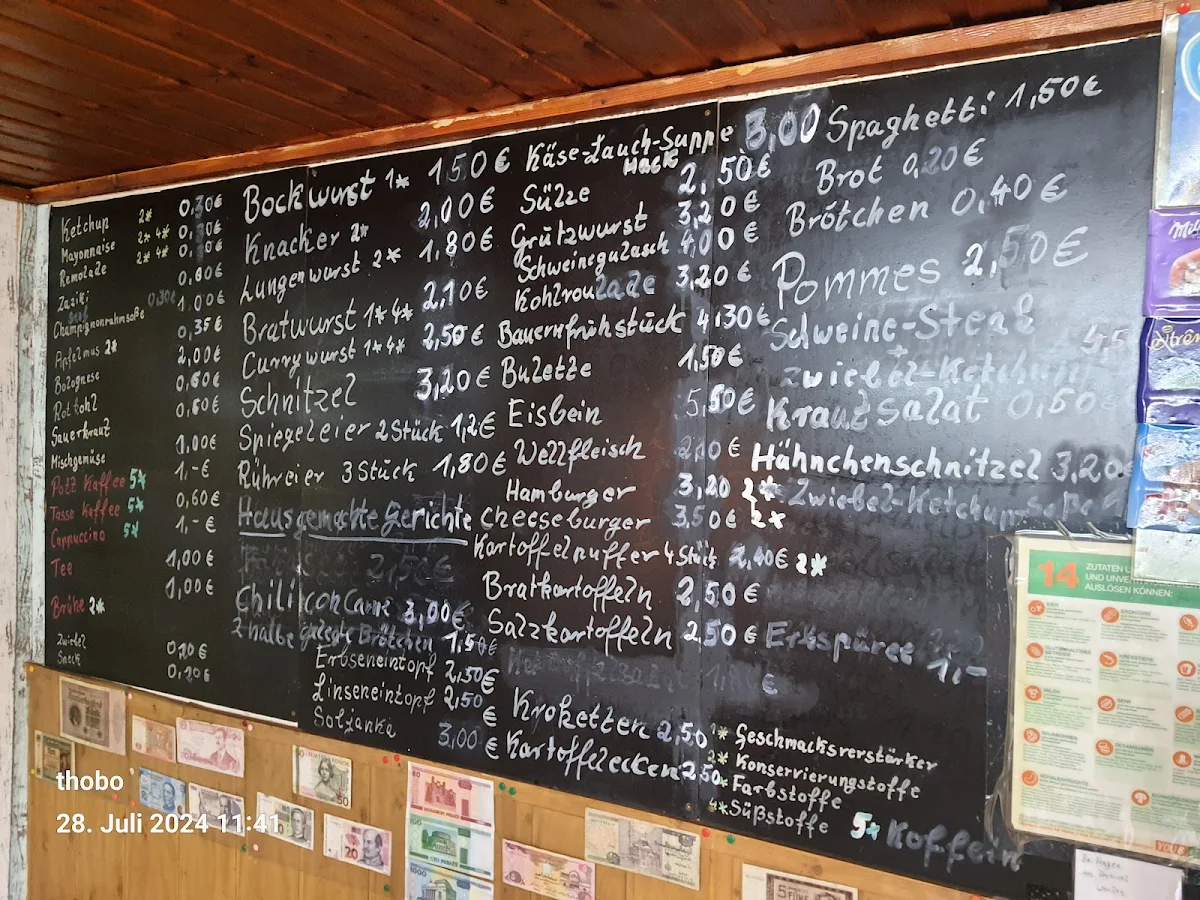 Ketchup 2* 0,30€
Mayonnaise 2* 4*
Remolade 2* 4*
Zaziki 0,60€
Champignonrahmsoße 1,00€
Apfelmus 2* 0,35€
Bolognese 2,00€
Rotkohl 0,60€
Sauerkraut 0,60€
Mischgemüse 1,00€
Pott Kaffee 5* 1,-€
Tasse Kaffee 5* 0,60€
Cappuccino 5* 1,-€
Tee 1,00€
Brühe 2* 1,00€
Zwiebel 0,10€
Senf 0,10€
Bockwurst 1* 1,50€
Knacker 2* 2,00€
Lungenwurst 2* 1,80€
Bratwurst 1* 4* 2,10€
Currywurst 1* 4* 2,50€
Schnitzel 3,20€
Spiegeleier 2 Stück 1,2€
Rühreier 3 Stück 1,80€
Hausgemachte Gerichte
Chili con Carne 3,00€
2 halbe gelegte Brötchen 1,50€
Erbseneintopf 2,50€
Linseneintopf 2,50€
Soljanka 3,00€
Käse-Lauch-Suppe 3,00
Hack
Sülze 2,50€
Grützwurst 3,20€
Schweinegulasch 4,00€
Kohlroulade 3,20€
Bauernfrühstück 4,30€
Bulette 1,50€
Eisbein 5,50€
Wellfleisch
Hamburger 3,20 2*
Cheeseburger 3,50€ 2*
Kartoffelpuffer 4 Stück 2,40€ 2*
Bratkartoffeln 2,50€
Salzkartoffeln 2,50€
Kroketten 2,50
Kartoffelecken 2,50
Spaghetti 1,50€
Brot 0,20€
Brötchen 0,40€
Pommes 2,50€
Schweine-Steak
+ Zwiebel-Ketchup
Krautsalat 0,60€
Hähnchenschnitzel 3,20€
+ Zwiebel-Ketchupsoße
1,-
* Geschmacksverstärker
2* Konservierungstoffe
* Farbstoffe
4* Süßstoffe
5* Koffein
14 ZUTATEN
UND
AUSLÖSEN KÖNNEN:
thobo
28. Juli 2024 11:41